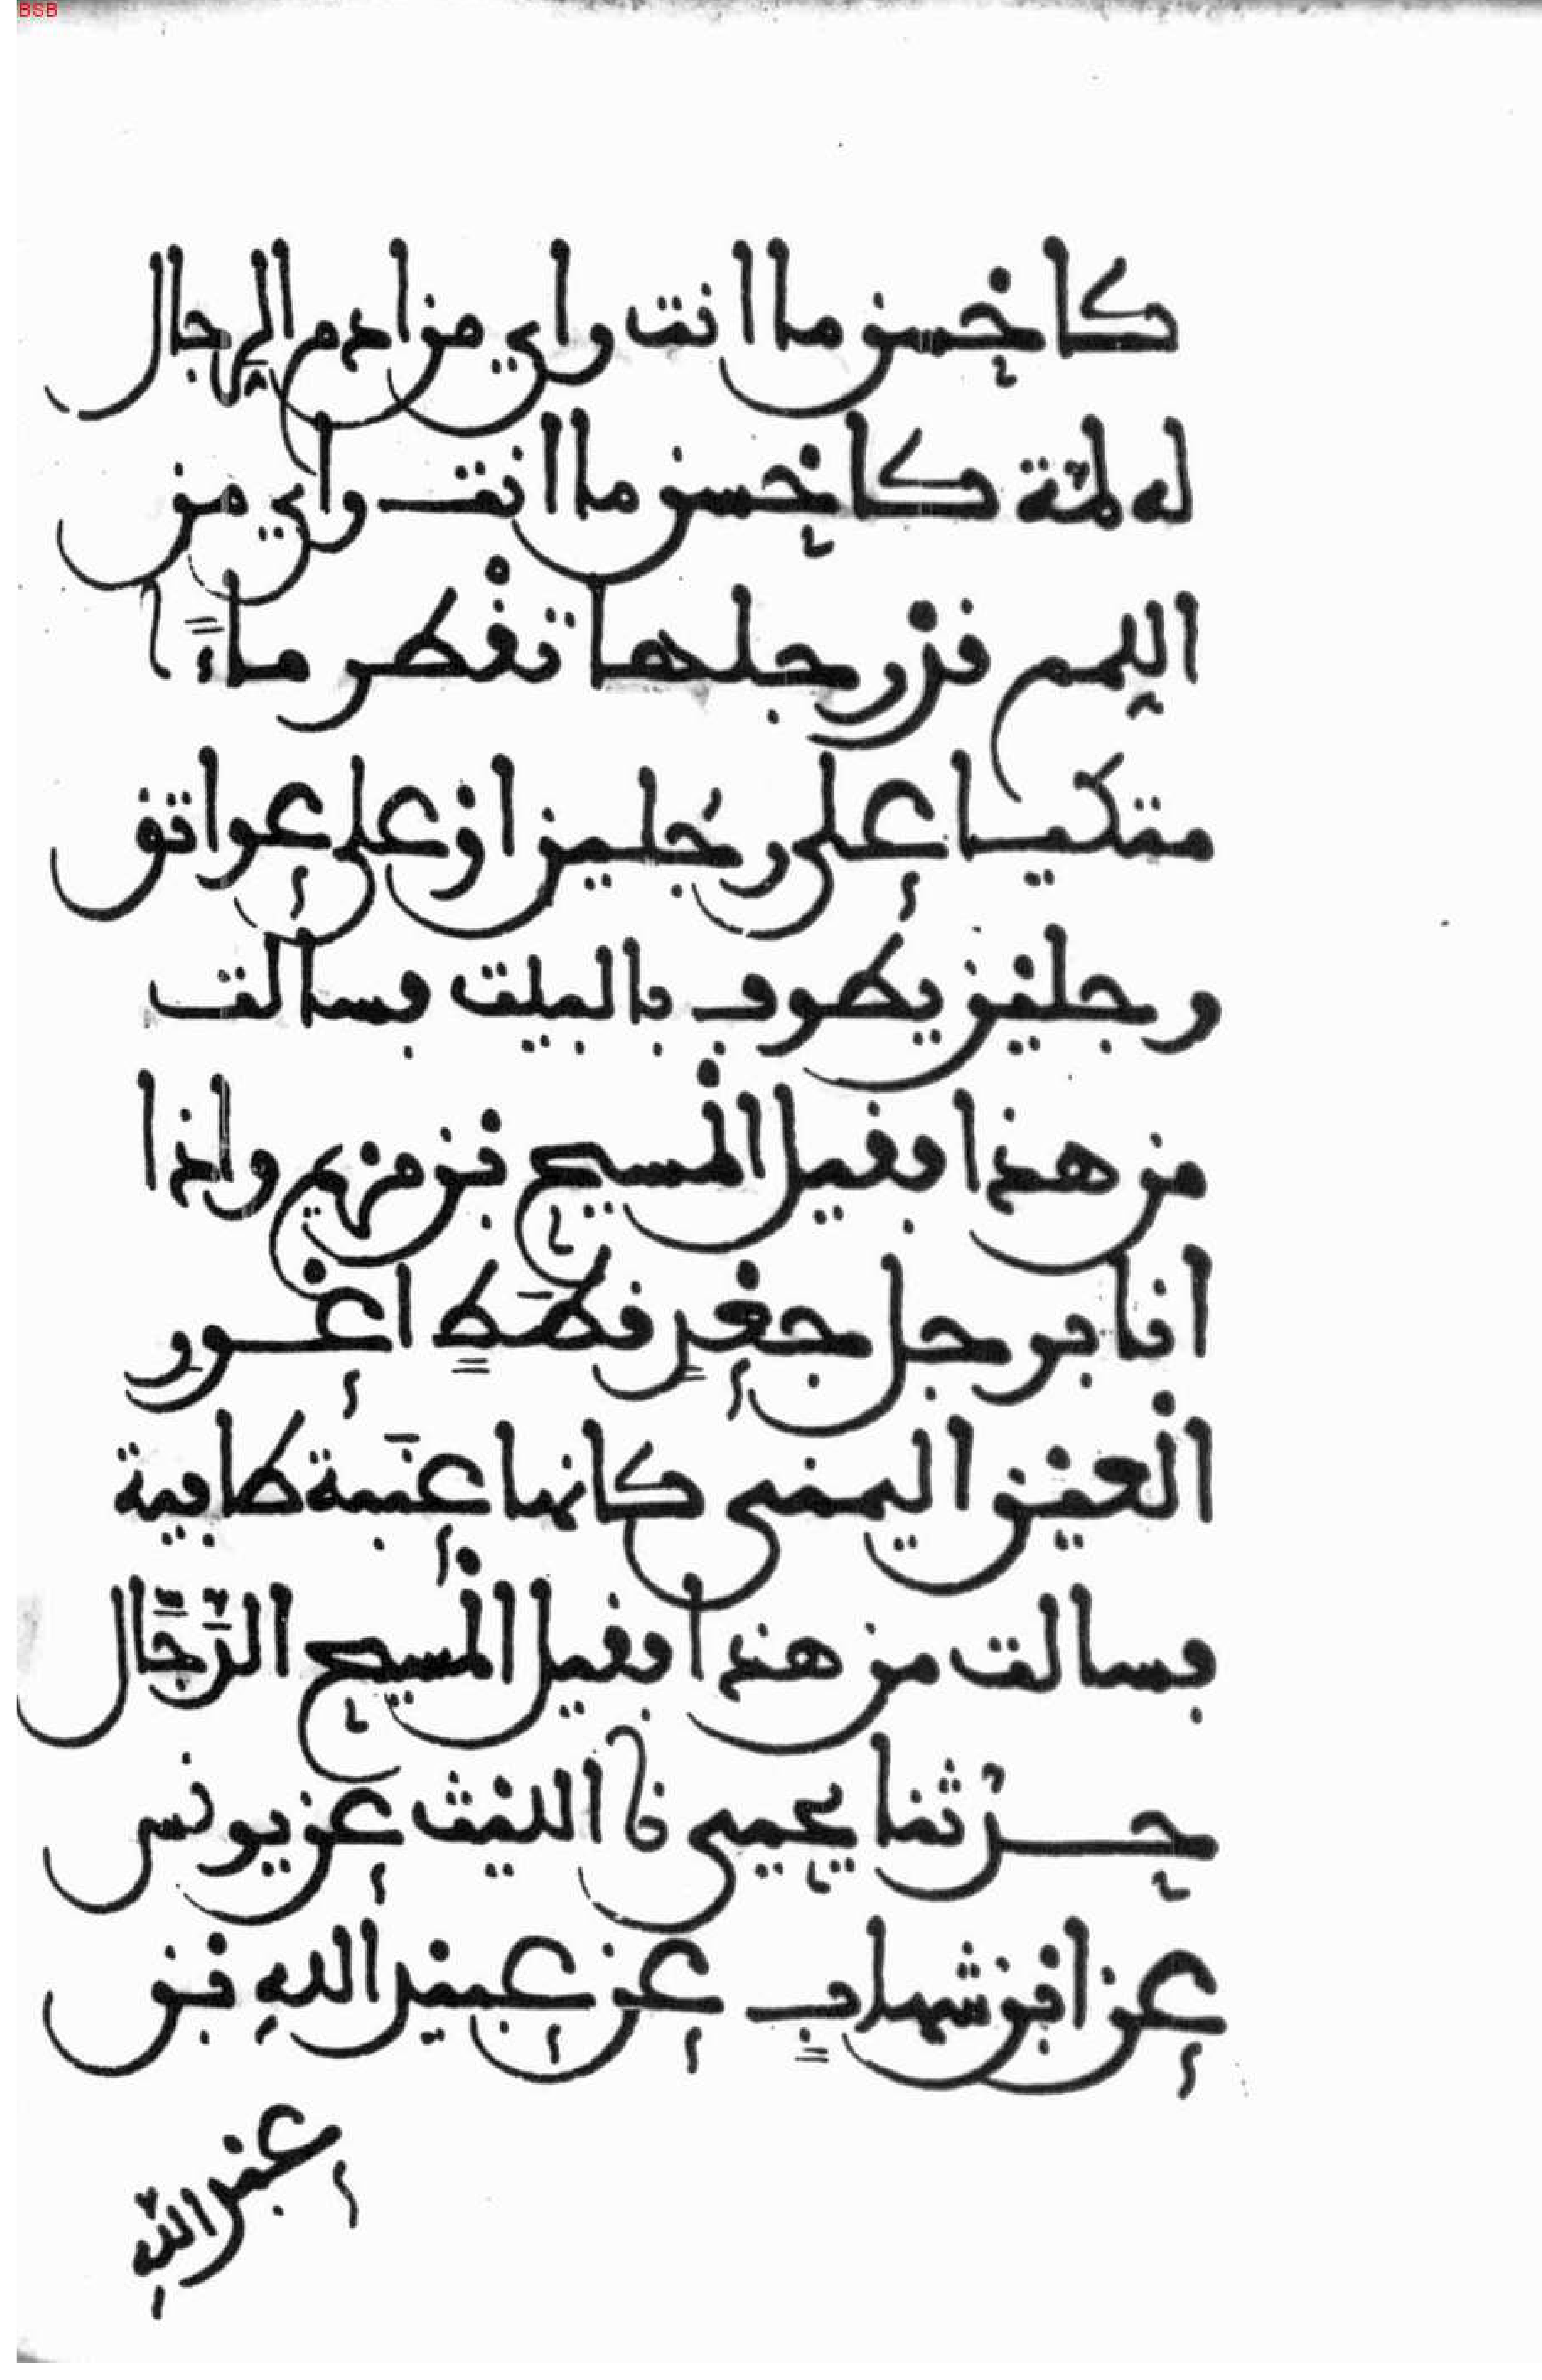 BSB
كاحسن ما انت راي من ادم الرجال
له لمة كاحسن ما انت راي من
اللمم قد رجلها تقطر ماء
متكيا على رجلين او على عواتق
رجلين يطوف بالبيت فسالت
من هذا فقيل المسيح بن مريم واذا
انا برجل جعد قطط اعور
العين اليمنى كانها عنبة طافية
فسالت من هذا فقيل المسيح الدجال
حدثنا يحيى نا الليث عن يونس
عن ابن شهاب عن عبيد الله بن
عبد الله